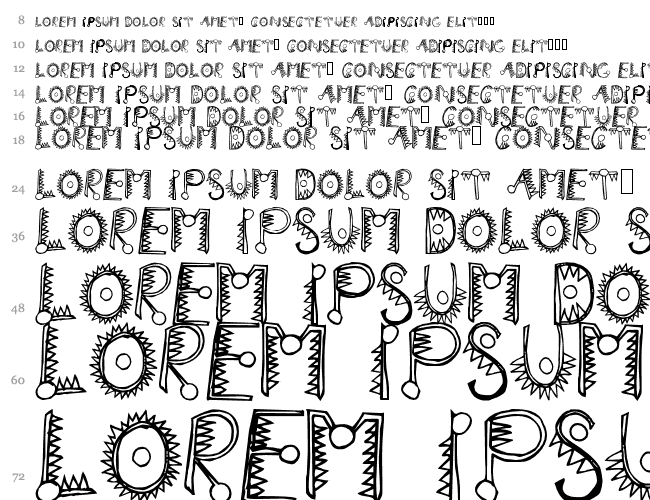 8 LOREM IPSUM DOLOR SIT AMET□ CONSECTETUER ADIPISCING ELIT□□□
10 LOREM IPSUM DOLOR SIT AMET□ CONSECTETUER ADIPISCING ELIT□□□
12 LOREM IPSUM DOLOR SIT AMET□ CONSECTETUER ADIPISCING ELIT
14 LOREM IPSUM DOLOR SIT AMET□ CONSECTETUER ADIPI
16 LOREM IPSUM DOLOR SIT AMET□ CONSECTETUER
18 LOREM IPSUM DOLOR SIT AMET□ CONSECTE
24 LOREM IPSUM DOLOR SIT AMET□
36 LOREM IPSUM DOLOR S
48 LOREM IPSUM DO
60 LOREM IPSUM
72 LOREM IPSU